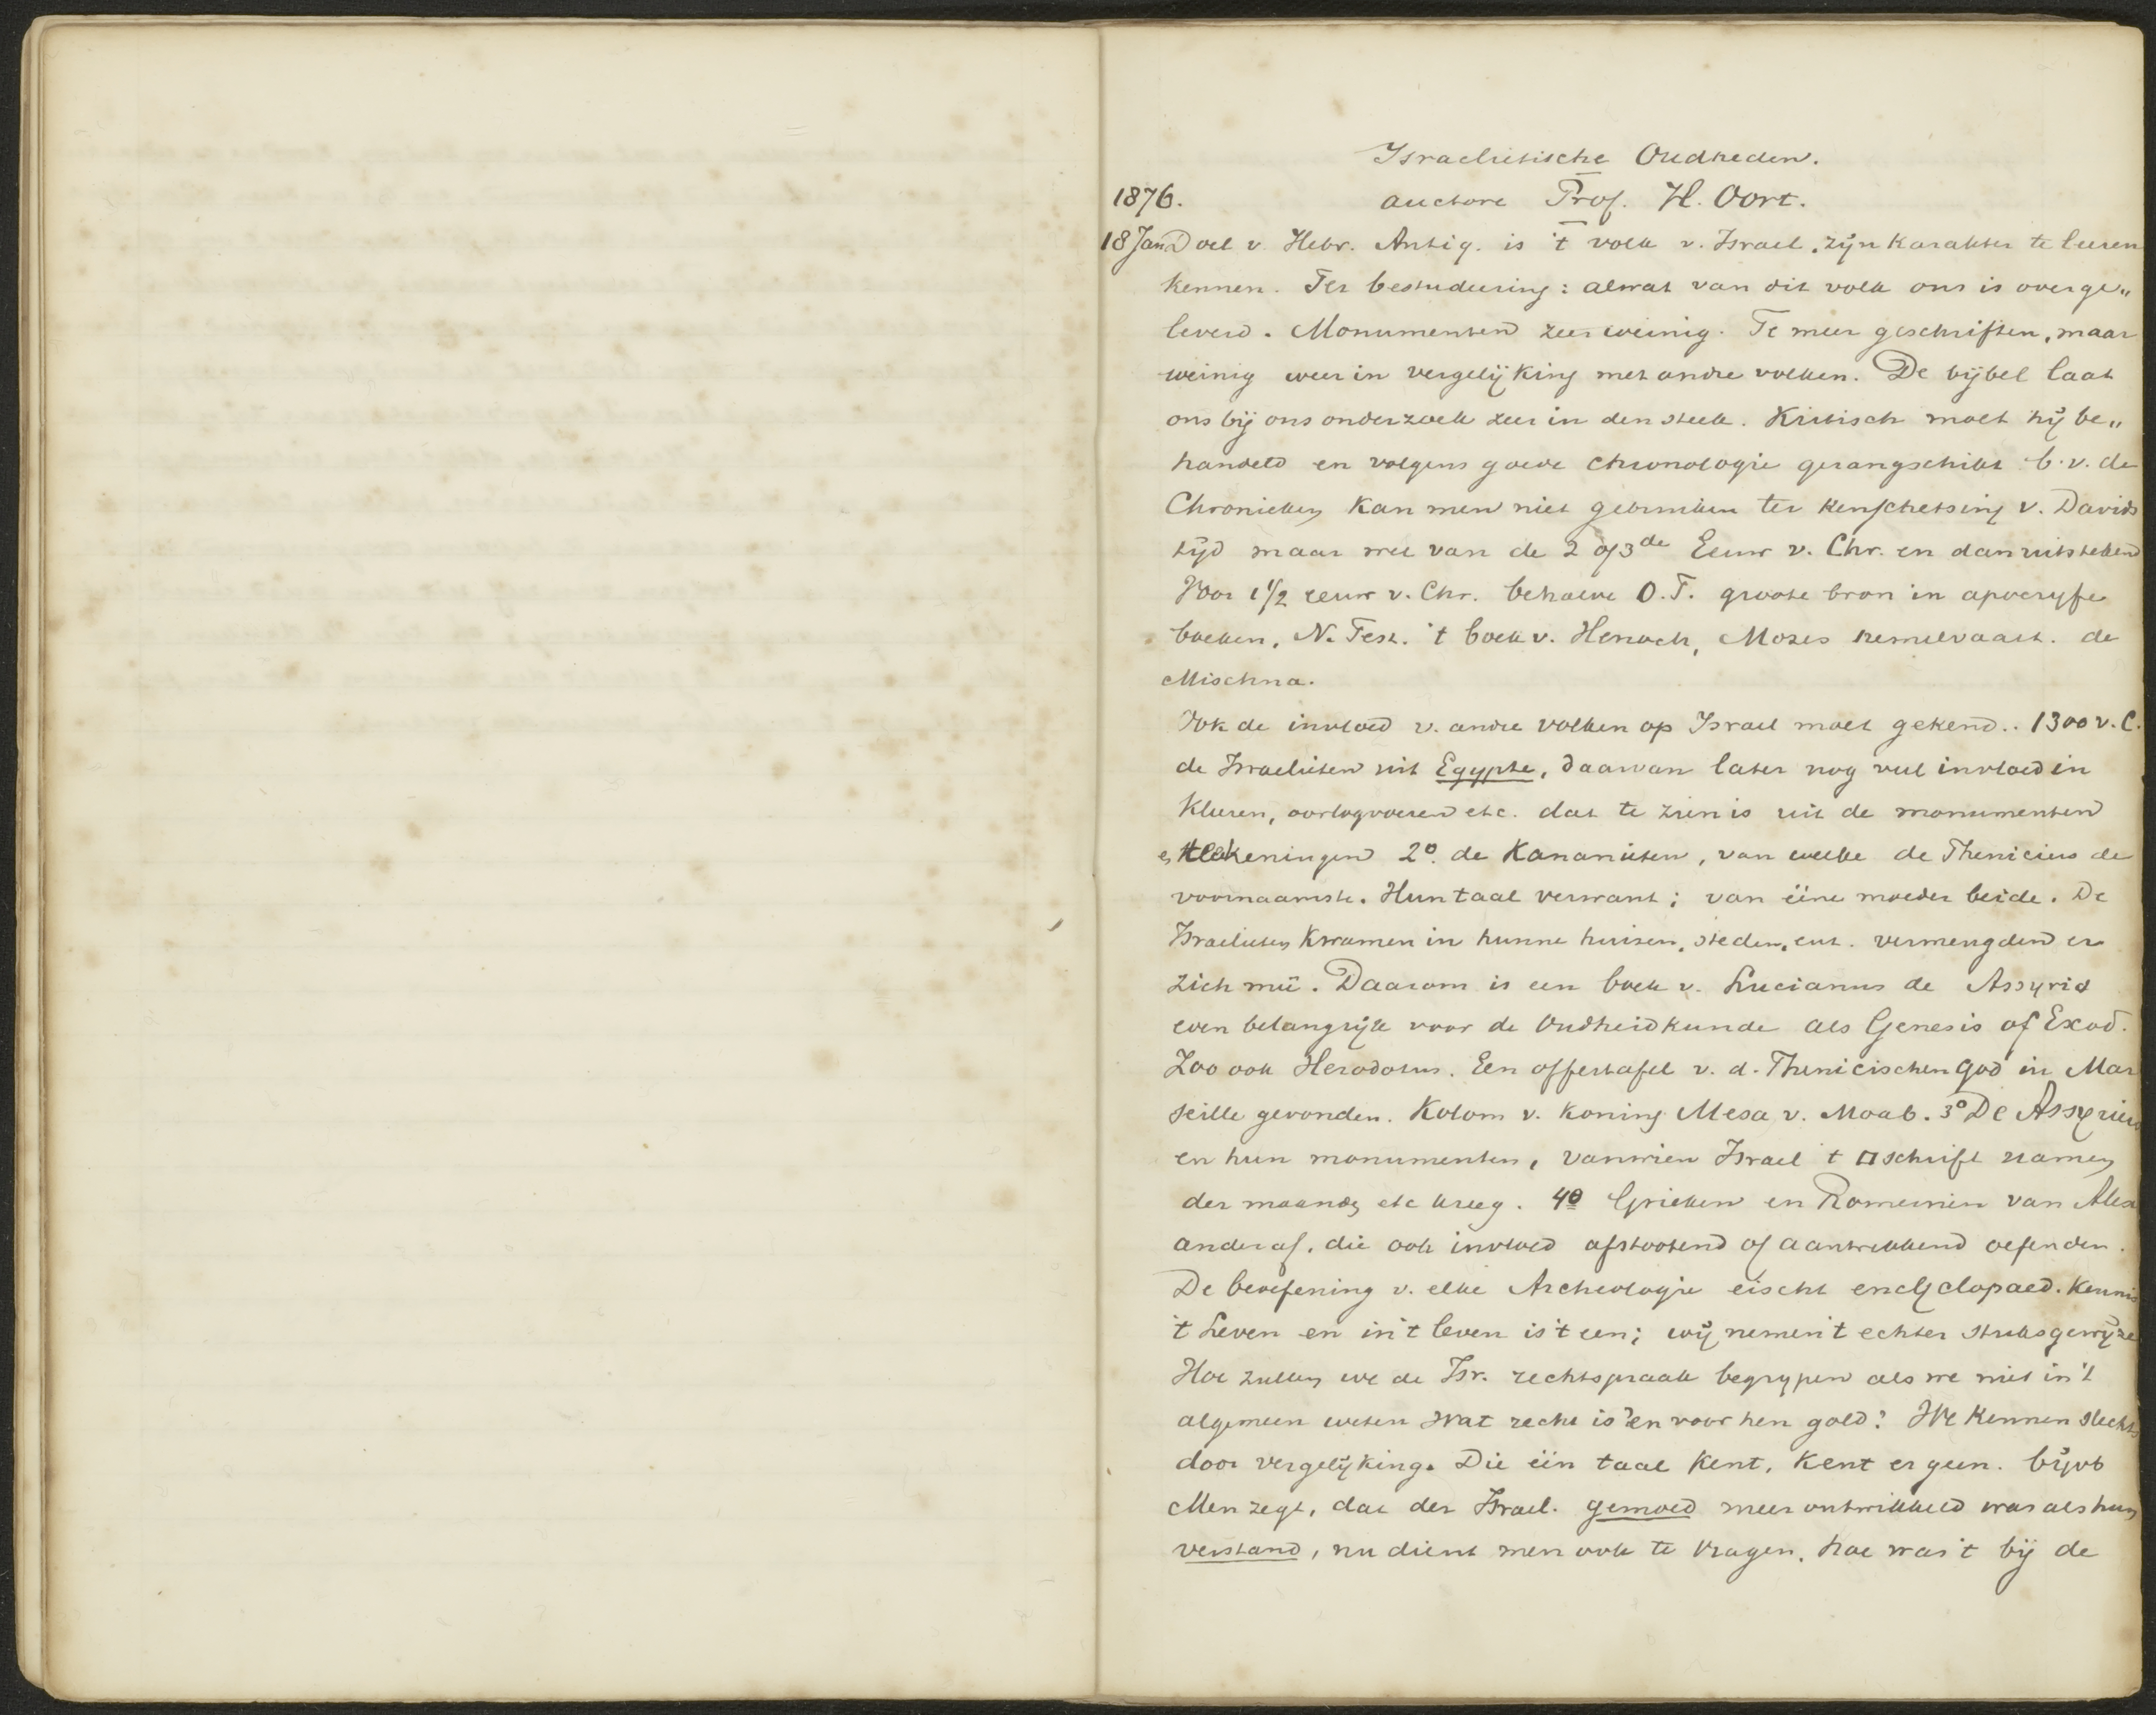 Israelietische Oudheden.
1876. auctore Prof. H. Oort.
18 Jan Doel v. Hebr. Antiq. is 't volk v. Israel, zijn karakter te leeren
kennen. Ter bestudeering: alwat van dit volk ons is overge„
leverd. Monumenten zeer weinig. Te meer geschriften, maar
weinig weer in vergelijking met andre volken. De bijbel laat
ons bij ons onderzoek zeer in den steek. Kritisch moet hij be„
handeld en volgens goede chronologie gerangschikt b.v. de
Chronieken kan men niet gebruiken ter kenschetsing v. Davids
tijd maar wel van de 2 of 3de Eeuw v. Chr. en dan uitstekend
Voor 1 1/2 eeuw v. Chr. behalve O.T. groote bron in apocryfe
boeken, N. Test. 't boek v. Henoch, Mozes hemelvaart. de
Mischna.
Ook de invloed v. andre volken op Israel moet gekend.. 1300 v. C.
de Israelieten uit Egypte, daarvan later nog veel invloed in
kleuren, oorlogvoeren etc. dat te zien is uit de monumenten
en teekeningen 2o. de Kananieten, van welke de Pheniciers de
voornaamste. Hun taal verwant; van ééne moeder beide. De
Israelieten kwamen in hunne huizen, steden, ent. vermengden er
zich meê. Daarom is een boek v. Lucianus de Assyria
even belangrijk voor de Oudheidkunde als Genesis of Exod.
Zoo ook Herodotus. Een offertafel v. d. Phenicischen god in Mar
seille gevonden. Kolom v. koning Mesa v. Moab. 3o De Assyriers
en hun monumenten, van wien Israel t □ schrift namen
der maanden etc kreeg. 4o Grieken en Romeinen van Alex
ander af, die ook invloed afstootend of aantrekkend oefenden.
De beoefening v. elke Archeologie eischt encyclopaed. kennis
't Leven en in 't leven is 't een; wij nemen 't echter stuksgewijze
Hoe zullen we de Isr. rechtspraak begrijpen als we niet in 't
algemeen weten wat recht is en voor hen gold? We kennen slechts
door vergelijking. Die één taal kent, kent er geen. bijvb
Men zegt, dat der Israel. gemoed meer ontwikkeld was als hun
verstand, nu dient men ook te vragen, hoe was 't bij de